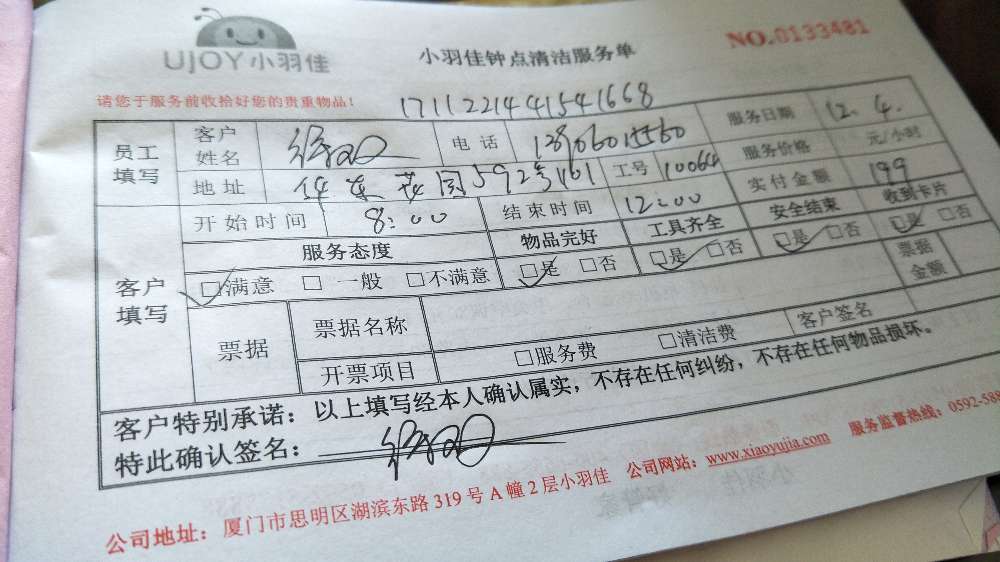 UJOY小羽佳
小羽佳钟点清洁服务单
NO.0133481
请您于服务前收拾好您的贵重物品!
1711221441541668
员工填写 客户姓名 电话 服务日期 12.4.
地址 592号 工号 10064 服务价格 元/小时
实付金额 199
客户填写 开始时间 8:00 结束时间 12:00 安全结束 收到卡片
服务态度 物品完好 工具齐全 □是 □否 □是 □否
□满意 □一般 □不满意 □是 □否 □是 □否
票据 票据名称 票据金额
开票项目 □服务费 □清洁费 客户签名
客户特别承诺:以上填写经本人确认属实,不存在任何纠纷,不存在任何物品损坏。
特此确认签名:
公司地址:厦门市思明区湖滨东路319号A幢2层小羽佳 公司网站:www.xiaoyujia.com 服务监督热线:0592-589